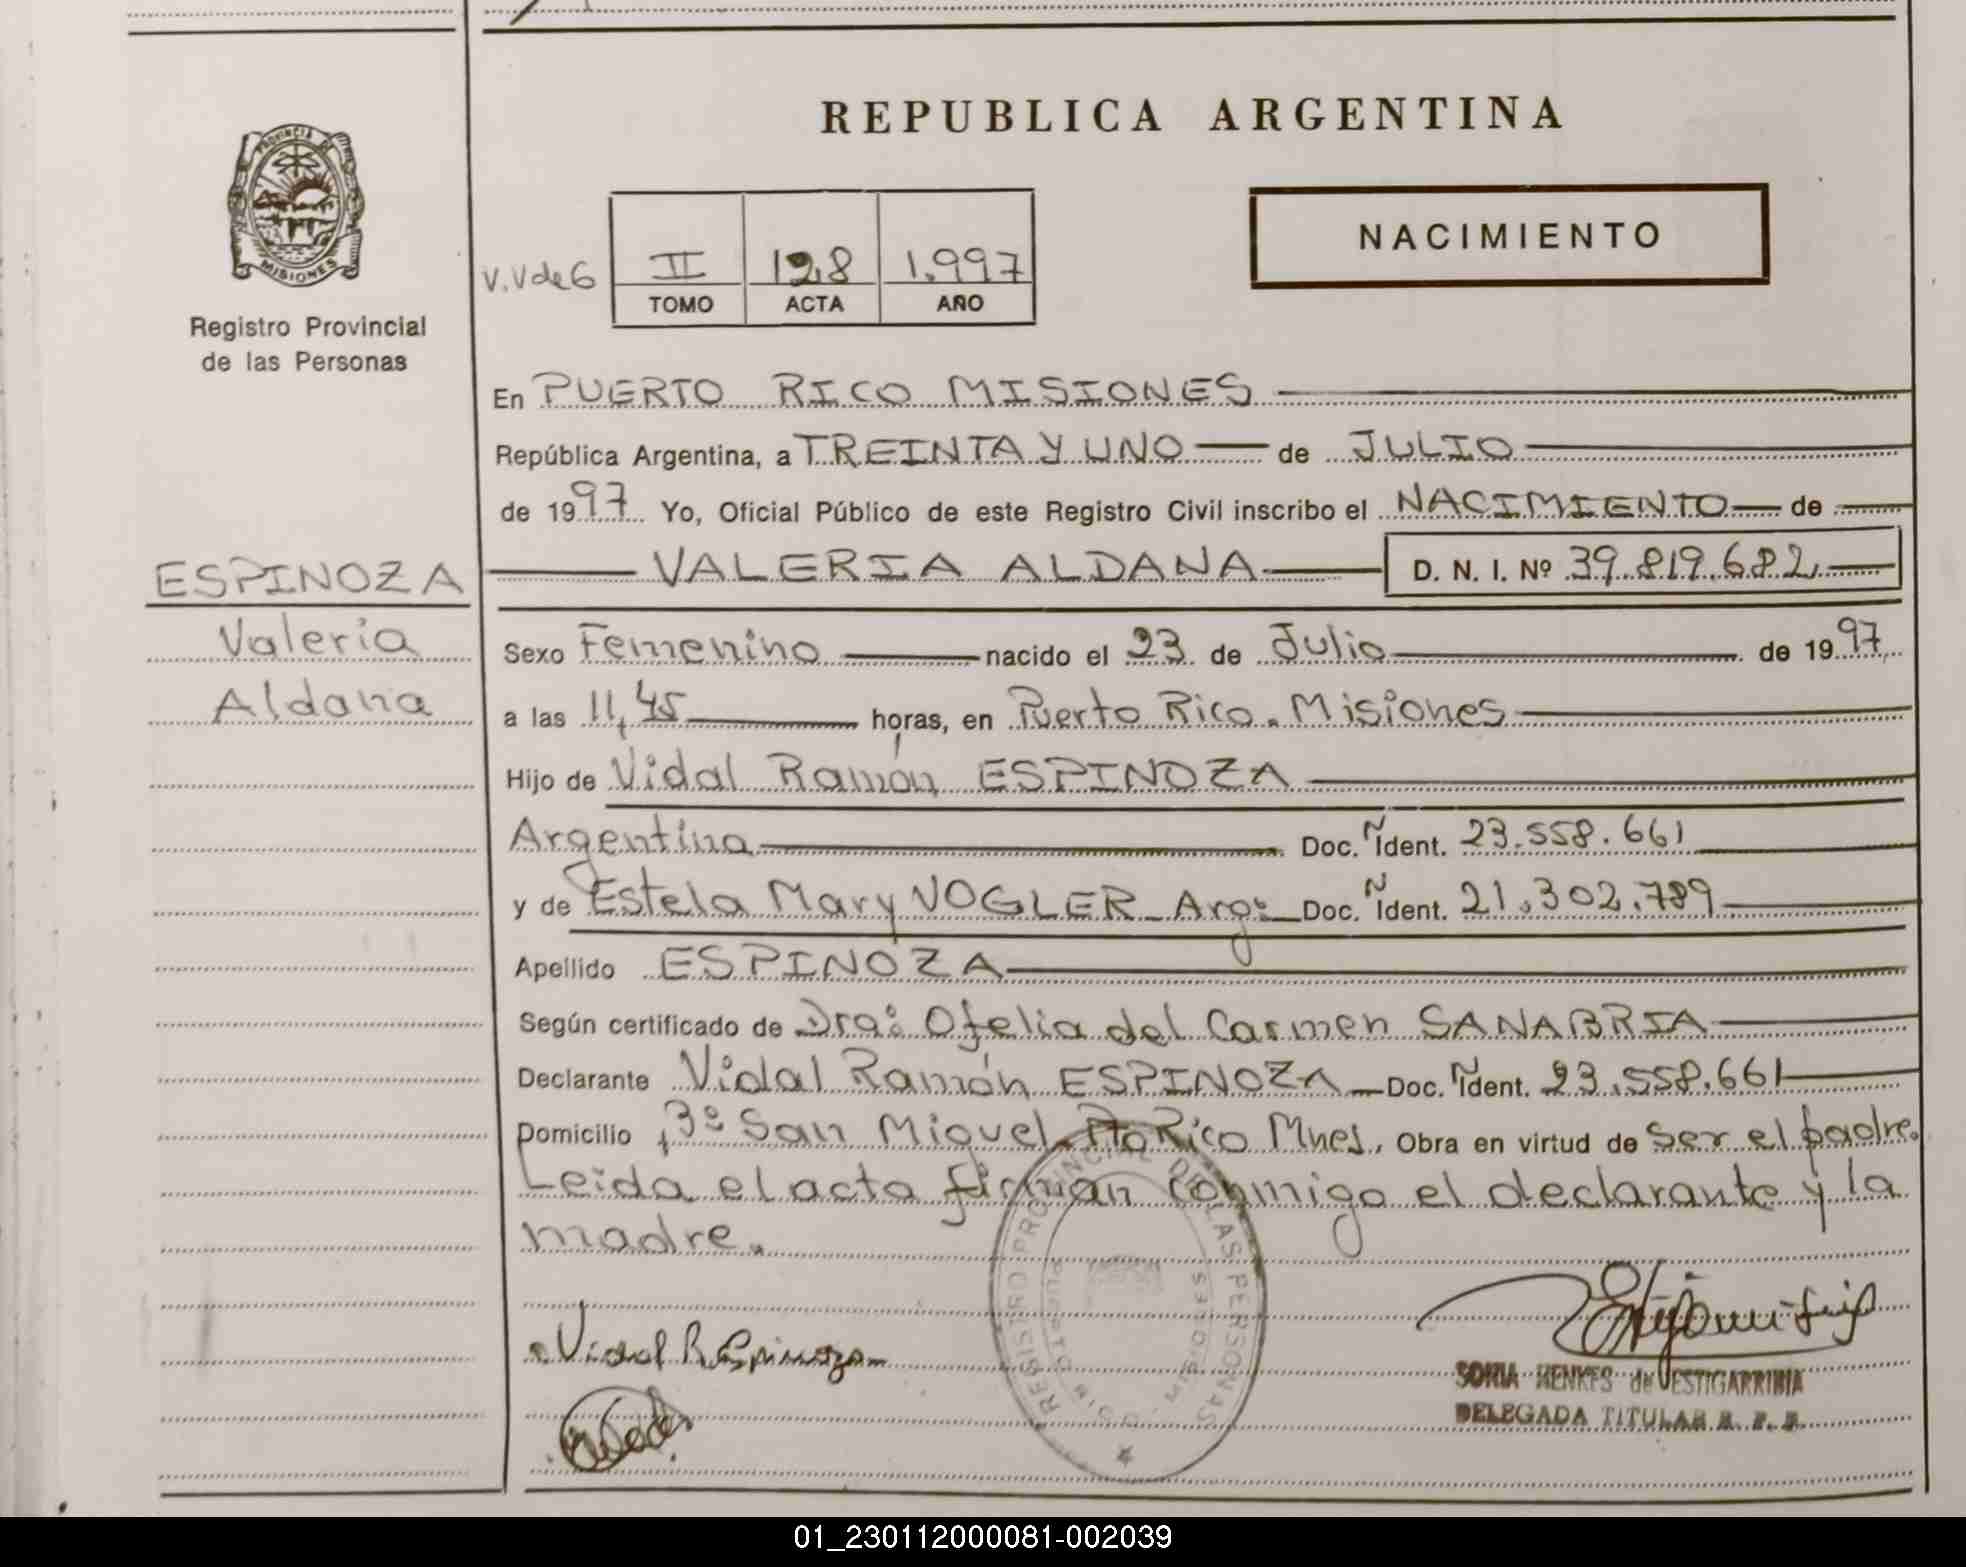 PROVINCIA DE
MISIONES
Registro Provincial
de las Personas
ESPINOZA
Valeria
Aldana
REPUBLICA ARGENTINA
NACIMIENTO
V.V de 6
II 128 1.997
TOMO ACTA AÑO
En PUERTO RICO MISIONES
República Argentina, a TREINTA Y UNO de JULIO
de 1997 Yo, Oficial Público de este Registro Civil inscribo el NACIMIENTO de
VALERIA ALDANA D. N. I. Nº 39.819.682
Sexo Femenino nacido el 23 de Julio de 1997
a las 11,45 horas, en Puerto Rico. Misiones
Hijo de Vidal Ramón ESPINOZA
Argentina Doc. Ñ Ident. 23.558.661
y de Estela Mary VOGLER - Arg: Doc. Ñ Ident. 21.302.789
Apellido ESPINOZA
Según certificado de Dra: Ofelia del Carmen SANABRIA
Declarante Vidal Ramón ESPINOZA Doc. Ñ Ident. 23.558.661
Domicilio 3º San Miguel. Pto Rico Mnes. Obra en virtud de ser el padre.
Leida el acta firman conmigo el declarante y la
madre.
REGISTRO PROVINCIAL DE LAS PERSONAS
PUERTO RICO MISIONES
Vidal R Espinoza
SONIA HENKES de VESTIGARRIBIA
DELEGADA TITULAR R. P. P.
01_230112000081-002039